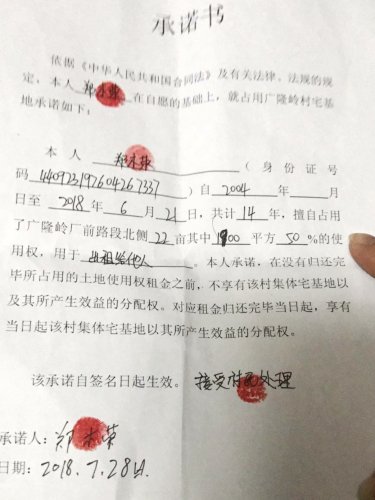 承诺书
依据《中华人民共和国合同法》及有关法律、法规的规
定，本人郑木荣在自愿的基础上，就占用广隆岭村宅基
地承诺如下：
本人郑木荣（身份证号
码440923197604267337）自2004年 月
日至2018年6月21日，共计14年，擅自占
用了广隆岭厂前路段北侧22亩其中1900平方50%的使
用权，用于出租给他人。本人承诺，在没有归还完
毕所占用的土地使用权租金之前，不享有该村集体宅基地以
及其所产生效益的分配权。对应租金归还完毕当日起，享有
当日起该村集体宅基地以其所产生效益的分配权。
该承诺自签名日起生效。接受村 处理
承诺人：郑木荣
日期：2018.7.28